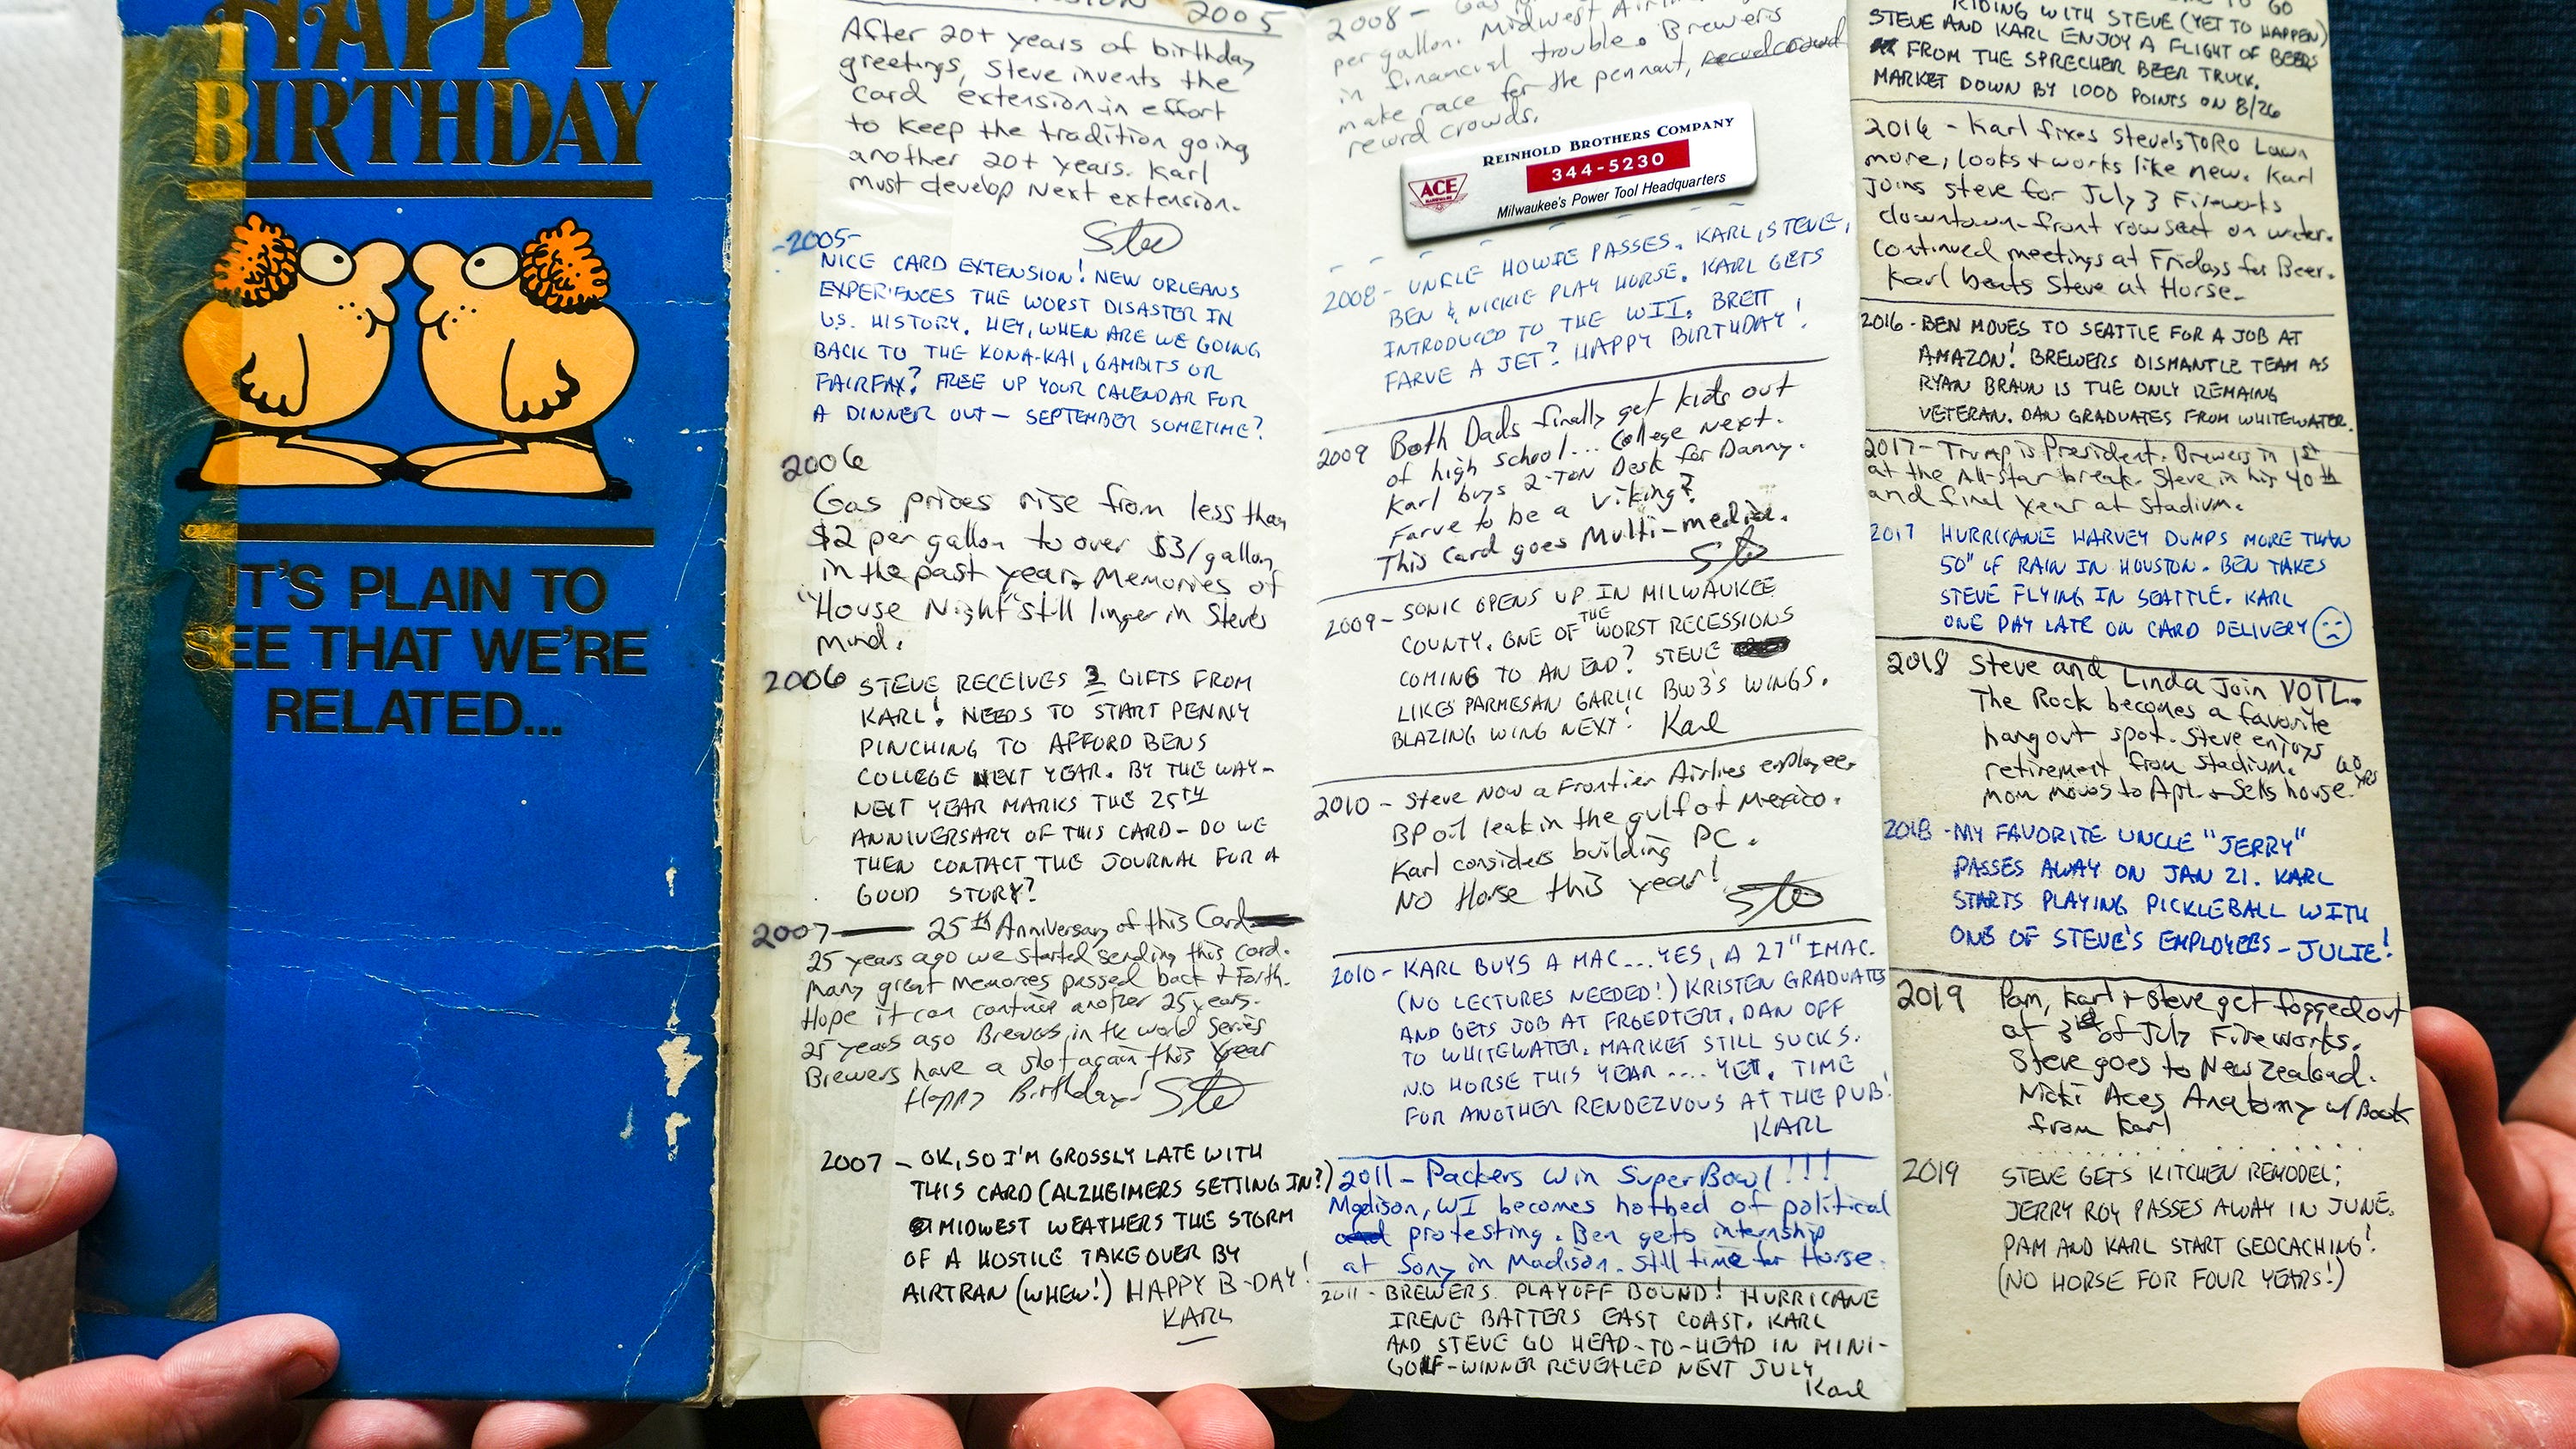 HAPPY
BIRTHDAY
IT'S PLAIN TO
SEE THAT WE'RE
RELATED...
2005
After 20+ years of birthday
greetings, Steve invents the
card extension in effort
to keep the tradition going
another 20+ years. Karl
must develop Next extension.
Steve
-2005-
NICE CARD EXTENSION! NEW ORLEANS
EXPERIENCES THE WORST DISASTER IN
U.S. HISTORY. HEY, WHEN ARE WE GOING
BACK TO THE KONA-KAI, GAMBITS OR
FAIRFAX? FREE UP YOUR CALENDAR FOR
A DINNER OUT — SEPTEMBER SOMETIME?
2006
Gas prices rise from less than
$2 per gallon to over $3/gallon
in the past year. Memories of
"House Night" still linger in Steve's
mind.
2006 STEVE RECEIVES 3 GIFTS FROM
KARL! NEEDS TO START PENNY
PINCHING TO AFFORD BENS
COLLEGE NEXT YEAR. BY THE WAY-
NEXT YEAR MARKS THE 25TH
ANNIVERSARY OF THIS CARD - DO WE
THEN CONTACT THE JOURNAL FOR A
GOOD STORY?
2007 — 25th Anniversary of this Card
25 years ago we started sending this card.
Many great Memories passed back & Forth.
Hope it can continue another 25 years.
25 years ago Brewers in the world series
Brewers have a shot again this Year
Happy Birthday! Steve
2007 - OK, SO I'M GROSSLY LATE WITH
THIS CARD (ALZHEIMERS SETTING IN?)
MIDWEST WEATHERS THE STORM
OF A HOSTILE TAKEOVER BY
AIRTRAN (WHEW!) HAPPY B-DAY!
KARL
2008 - Gas
per gallon. Midwest Airlines
in financial trouble. Brewers
make race for the pennant, record crowd
record crowds.
REINHOLD BROTHERS COMPANY
344-5230
ACE
HARDWARE
Milwaukee's Power Tool Headquarters
2008 - UNCLE HOWIE PASSES. KARL, STEVE,
BEN & NICKIE PLAY HORSE. KARL GETS
INTRODUCED TO THE WII. BRETT
FARVE A JET? HAPPY BIRTHDAY!
2009 Both Dads finally get kids out
of high school... College next.
Karl buys 2-TON Desk for Danny.
Farve to be a Viking?
This Card goes Multi-media.
Steve
2009 - SONIC OPENS UP IN MILWAUKEE
COUNTY. ONE OF THE WORST RECESSIONS
COMING TO AN END? STEVE
LIKES PARMESAN GARLIC BW3'S WINGS.
BLAZING WING NEXT! Karl
2010 - Steve Now a Frontier Airlines employee.
BP oil leak in the gulf of Mexico.
Karl considers building PC.
No Horse this year!
Steve
2010 - KARL BUYS A MAC... YES, A 27" IMAC.
(NO LECTURES NEEDED!) KRISTEN GRADUATES
AND GETS JOB AT FROEDTERT. DAN OFF
TO WHITEWATER. MARKET STILL SUCKS.
NO HORSE THIS YEAR .... YET. TIME
FOR ANOTHER RENDEZVOUS AT THE PUB!
KARL
2011 - Packers win SuperBowl!!!
Madison, WI becomes hotbed of political
protesting. Ben gets internship
at Sony in Madison. Still time for Horse.
2011 - BREWERS PLAYOFF BOUND! HURRICANE
IRENE BATTERS EAST COAST. KARL
AND STEVE GO HEAD-TO-HEAD IN MINI-
GOLF - WINNER REVEALED NEXT JULY
Karl
TO GO
RIDING WITH STEVE (YET TO HAPPEN)
STEVE AND KARL ENJOY A FLIGHT OF BEERS
FROM THE SPRECHER BEER TRUCK.
MARKET DOWN BY 1000 POINTS ON 8/26
2016 - Karl fixes Steve's TORO Lawn
more, looks & works like new. Karl
Joins Steve for July 3 Fireworks
downtown-front row seat on water.
Continued meetings at Fridays for Beer.
Karl beats Steve at Horse.
2016 - BEN MOVES TO SEATTLE FOR A JOB AT
AMAZON! BREWERS DISMANTLE TEAM AS
RYAN BRAUN IS THE ONLY REMAING
VETERAN. DAN GRADUATES FROM WHITEWATER.
2017 - Trump is President. Brewers in 1st
at the All-Star break. Steve in his 40th
and final year at Stadium.
2017 HURRICANE HARVEY DUMPS MORE THAN
50" OF RAIN IN HOUSTON. BEN TAKES
STEVE FLYING IN SEATTLE. KARL
ONE DAY LATE ON CARD DELIVERY
2018 Steve and Linda Join VOTL.
The Rock becomes a favorite
hang out spot. Steve enjoys
retirement from Stadium.
mom moves to Apt. & Sells house. 60 YRS
2018 - MY FAVORITE UNCLE "JERRY"
PASSES AWAY ON JAN 21. KARL
STARTS PLAYING PICKLEBALL WITH
ONE OF STEVE'S EMPLOYEES - JULIE!
2019 Pam, Karl & Steve get fogged out
at 3rd of July Fireworks.
Steve goes to New Zealand.
Nicki Aces Anatomy w/ Book
from Karl
2019 STEVE GETS KITCHEN REMODEL;
JERRY ROY PASSES AWAY IN JUNE.
PAM AND KARL START GEOCACHING!
(NO HORSE FOR FOUR YEARS!)